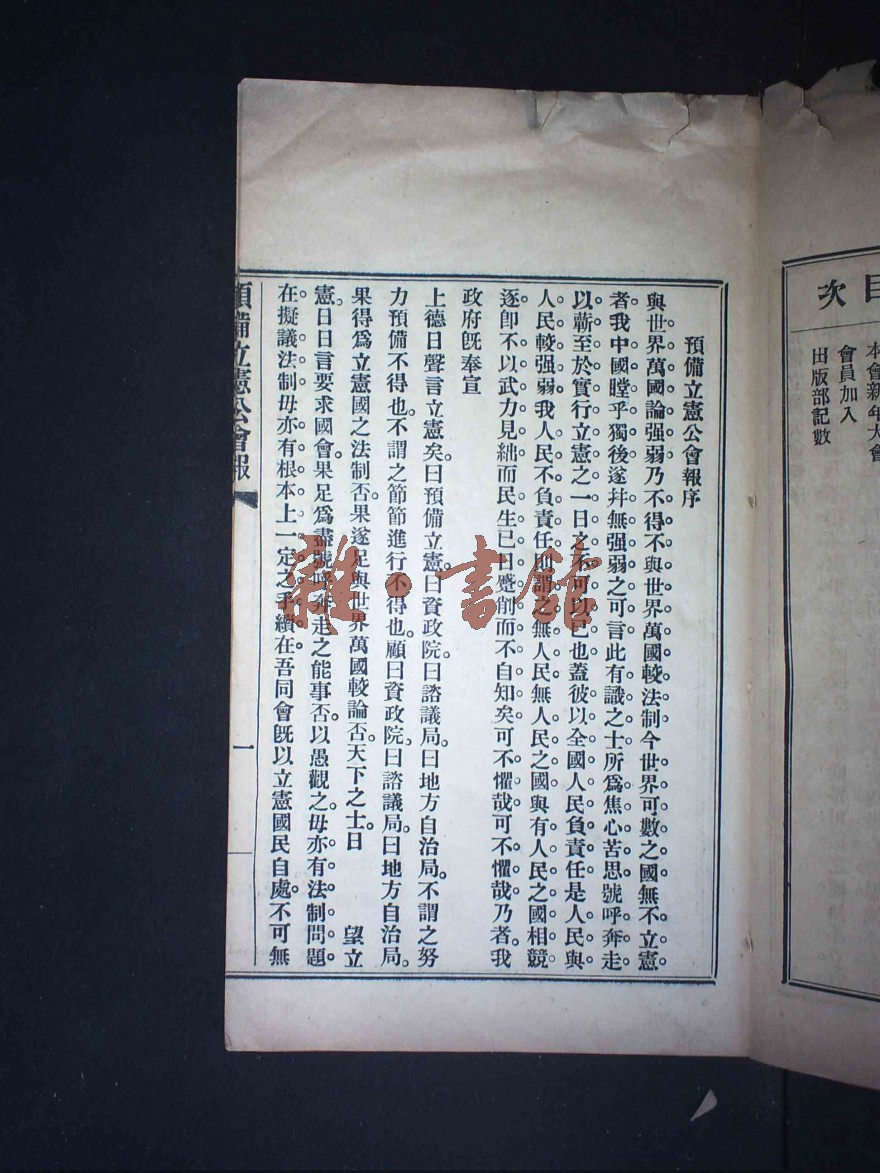 目次
本會新年大會
會員加入
出版部記數
預備立憲公會報序
與世界萬國論强弱乃不得不與世界萬國較法制今世界可數之國無不立憲
者我中國瞠乎獨後遂幷無强弱之可言此有識之士所爲焦心苦思號呼奔走
以蘄至於實行立憲之一日之不可以已也蓋彼以全國人民負責任是人民與
人民較强弱我人民不負責任則謂之無人民無人民之國與有人民之國相競
逐卽不以武力見絀而民生已日蹙削而不自知矣可不懼哉可不懼哉乃者我
政府旣奉宣
上德日聲言立憲矣曰預備立憲曰資政院曰諮議局曰地方自治局不謂之努
力預備不得也不謂之節節進行不得也顧曰資政院曰諮議局曰地方自治局
果得爲立憲國之法制否果遂足與世界萬國較論否天下之士日望立
憲日日言要求國會果足爲盡號呼奔走之能事否以愚觀之毋亦有法制問題
在擬議法制毋亦有根本上一定之手續在吾同會旣以立憲國民自處不可無
預備立憲公會報
一
雜·書館